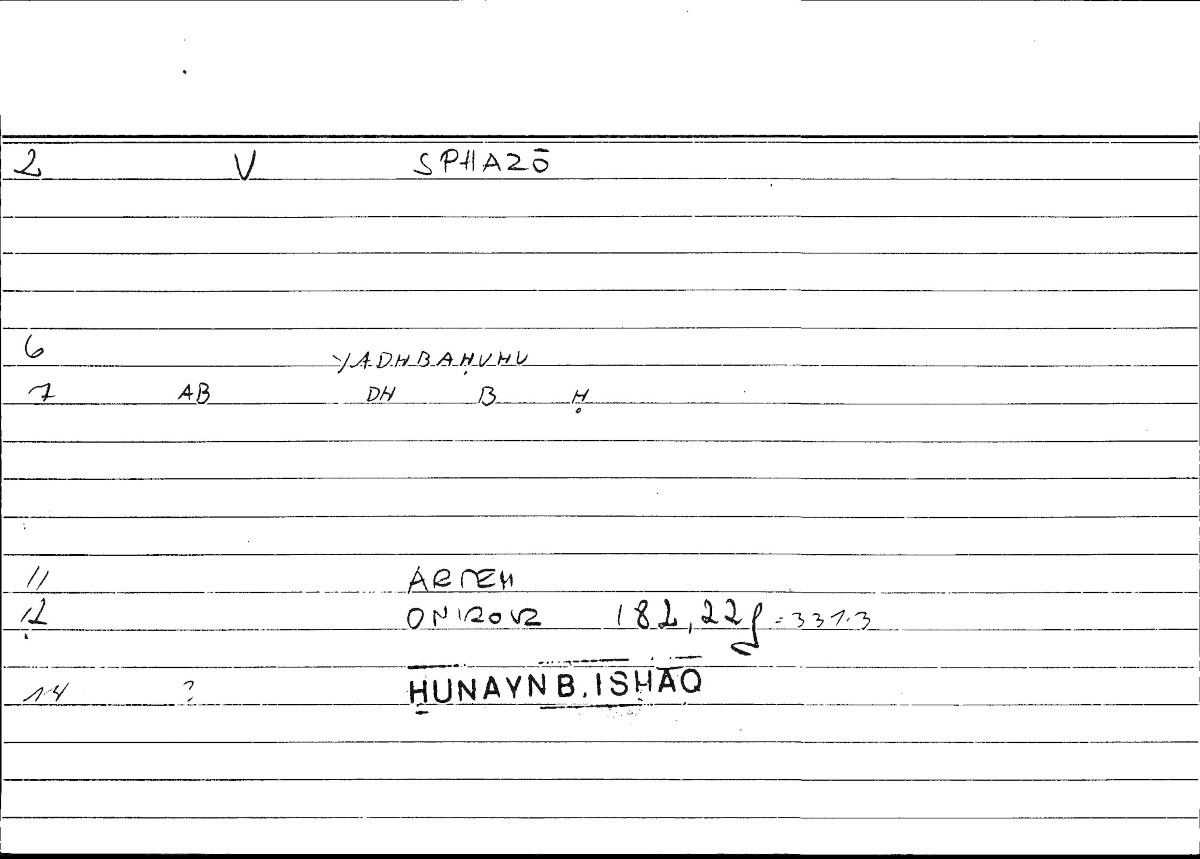 2 V SPHAZŌ
6 YADHBAḤUHU
7 AB DH B Ḥ
11 ARTEM
12 ONIROUR 182,22f = 331.3
14 ? ḤUNAYN B. ISḤĀQ